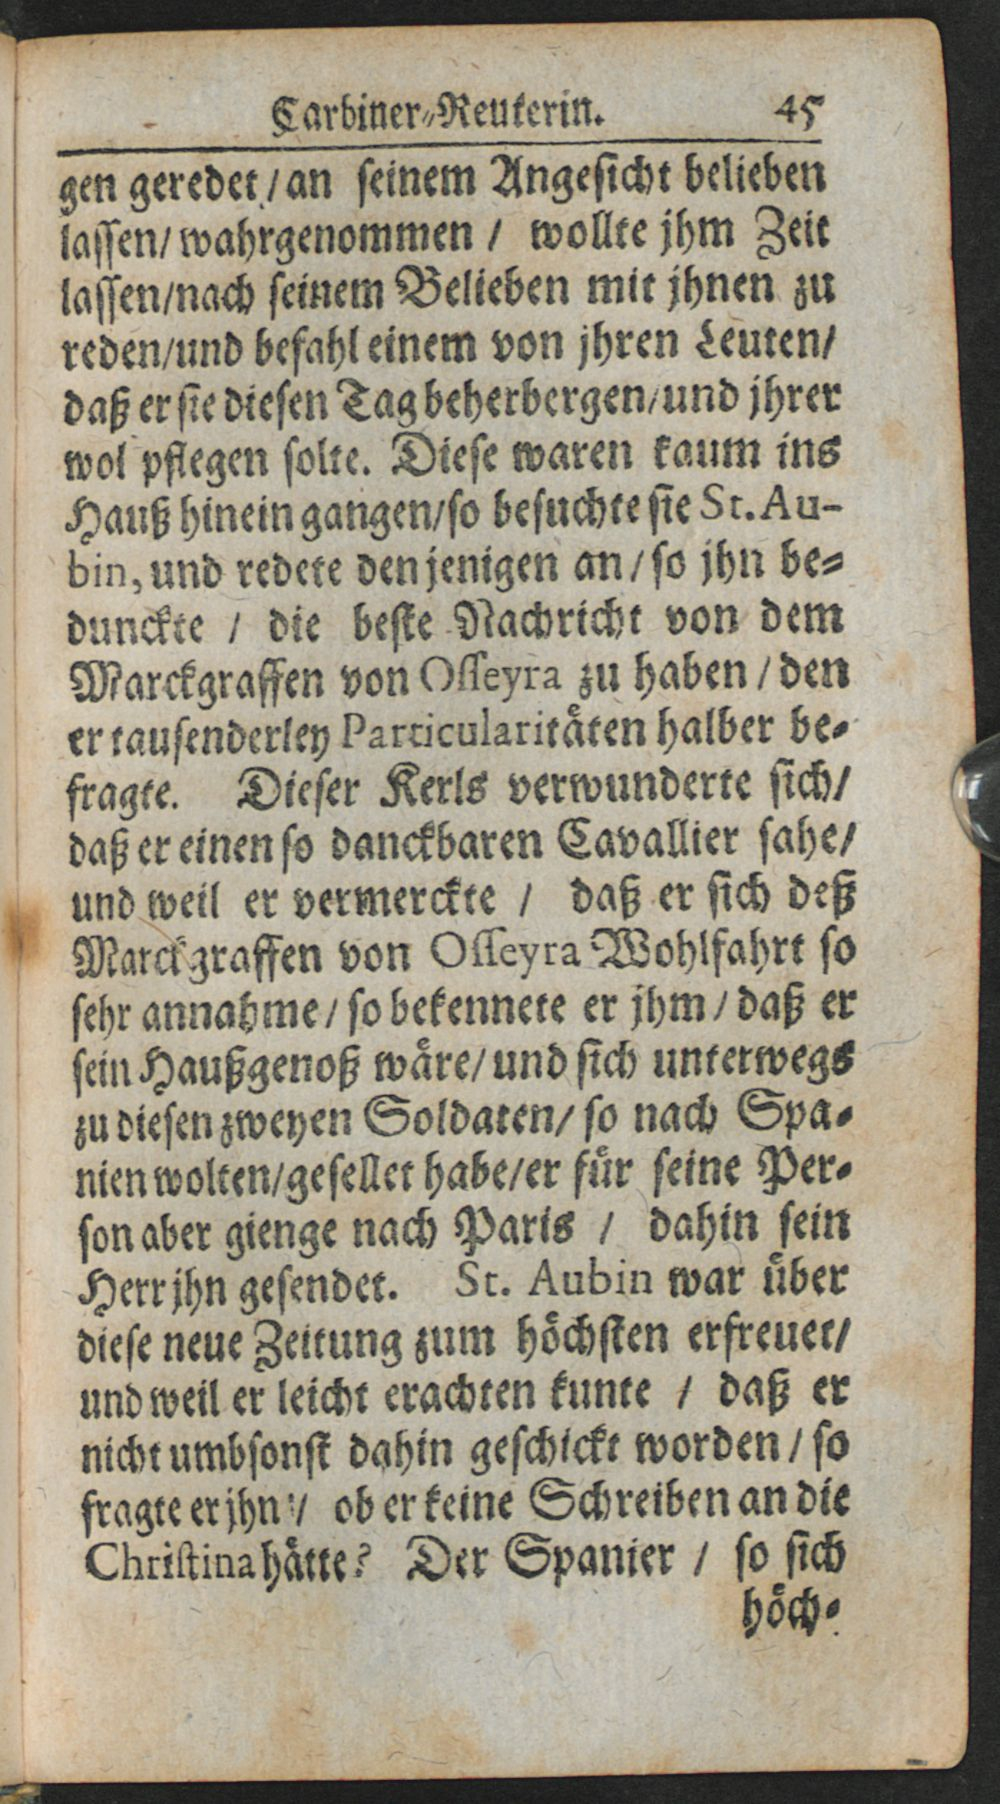 Carbiner-Reuterin. 45
gen geredet / an seinem Angesicht belieben
lassen / wahrgenommen / wollte jhm Zeit
lassen / nach seinem Belieben mit jhnen zu
reden / und befahl einem von jhren Leuten /
daß er sie diesen Tag beherbergen / und jhrer
wol pflegen solte. Diese waren kaum ins
Hauß hinein gangen / so besuchte sie St. Au-
bin, und redete denjenigen an / so jhn be-
dunckte / die beste Nachricht von dem
Marckgraffen von Osseyra zu haben / den
er tausenderley Particularitäten halber be-
fragte. Dieser Kerls verwunderte sich /
daß er einen so danckbaren Cavallier sahe /
und weil er vermerckte / daß er sich deß
Marckgraffen von Osseyra Wohlfahrt so
sehr annahme / so bekennete er jhm / daß er
sein Haußgenoß wäre / und sich unterwegs
zu diesen zweyen Soldaten / so nach Spa-
nien wolten / gesellet habe / er für seine Per-
son aber gienge nach Paris / dahin sein
Herr jhn gesendet. St. Aubin war über
diese neue Zeitung zum höchsten erfreuet /
und weil er leicht erachten kunte / daß er
nicht umbsonst dahin geschickt worden / so
fragte er jhn / ob er keine Schreiben an die
Christina hätte? Der Spanier / so sich
höch-